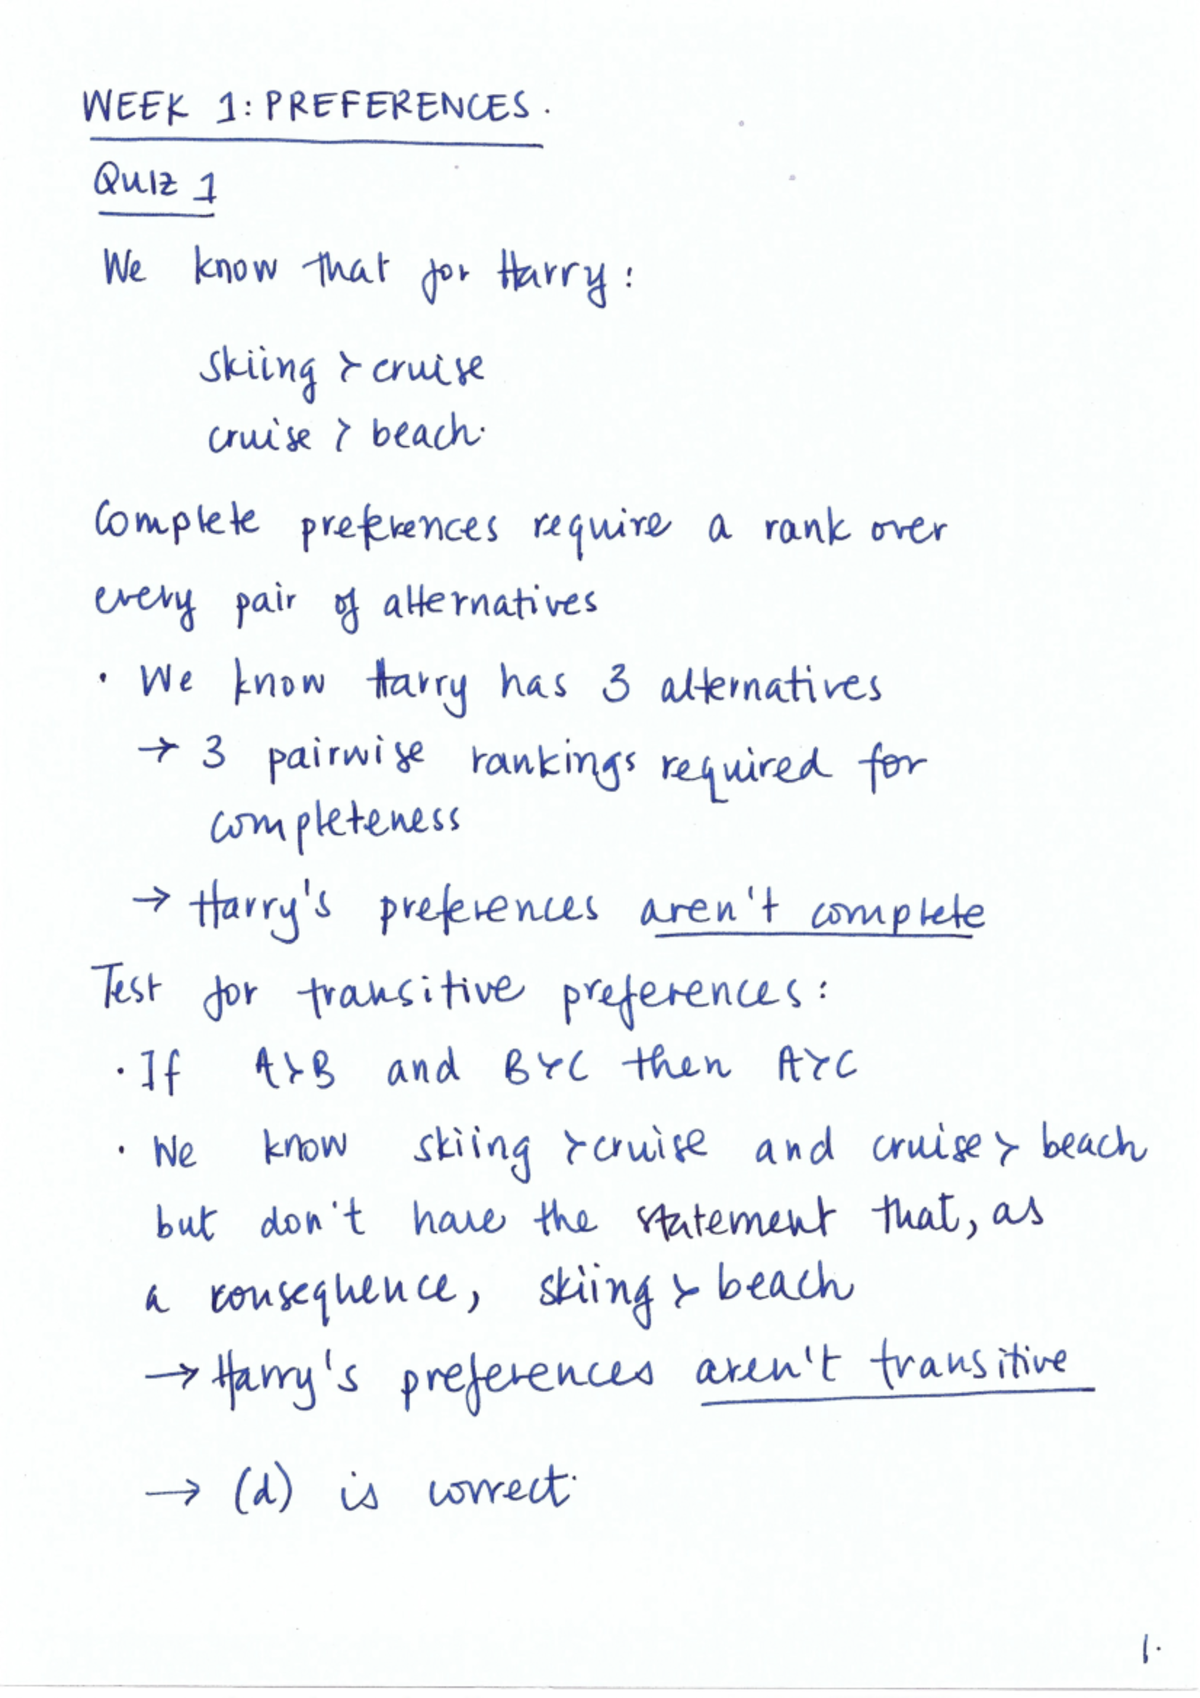 WEEK 1: PREFERENCES.
Quiz 1
We know that for Harry:
skiing ≻ cruise
cruise ≻ beach.
Complete preferences require a rank over
every pair of alternatives
· We know Harry has 3 alternatives
→ 3 pairwise rankings required for
completeness
→ Harry's preferences aren't complete
Test for transitive preferences:
· If A≻B and B≻C then A≻C
· We know skiing ≻ cruise and cruise ≻ beach
but don't have the statement that, as
a consequence, skiing ≻ beach
→ Harry's preferences aren't transitive
→ (d) is correct.
1.